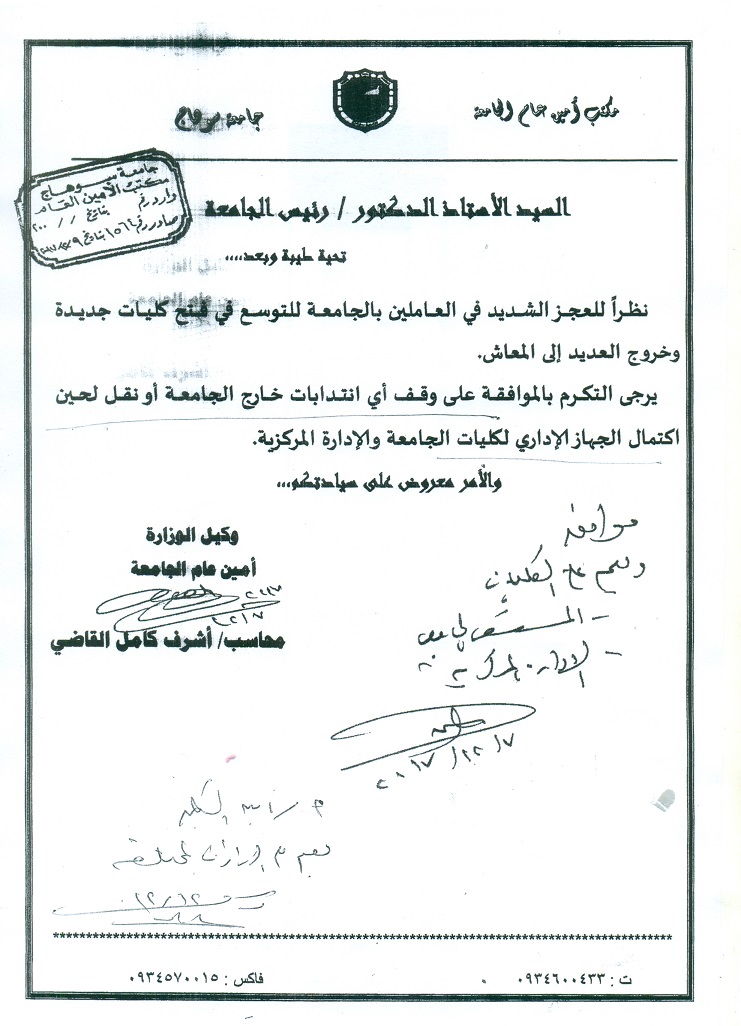 مكتب أمين عام الجامعة
جامعة سوهاج
جامعة سوهاج
مكتب الأمين العام
وارد رقم بتاريخ / / ٢٠٠
صادر رقم ١٥٦٤ بتاريخ
السيد الأستاذ الدكتور / رئيس الجامعة
تحية طيبة وبعد....
نظراً للعجز الشديد في العاملين بالجامعة للتوسع في فتح كليات جديدة
وخروج العديد إلى المعاش.
يرجى التكرم بالموافقة على وقف أي انتدابات خارج الجامعة أو نقل لحين
اكتمال الجهاز الإداري لكليات الجامعة والإدارة المركزية.
والأمر معروض على سيادتكم...
موافقة
وتعمم على الكليات
- المستشفى الجامعى
- الإدارة المركزية
٢٠١٧/١٢/٧
وكيل الوزارة
أمين عام الجامعة
٢٠١٧
١٢/٧
محاسب/ أشرف كامل القاضي
الكلية
١٢/١٢
******************************************************************************
ت : ٠٩٣٤٦٠٠٤٣٣
فاكس : ٠٩٣٤٥٧٠٠١٥